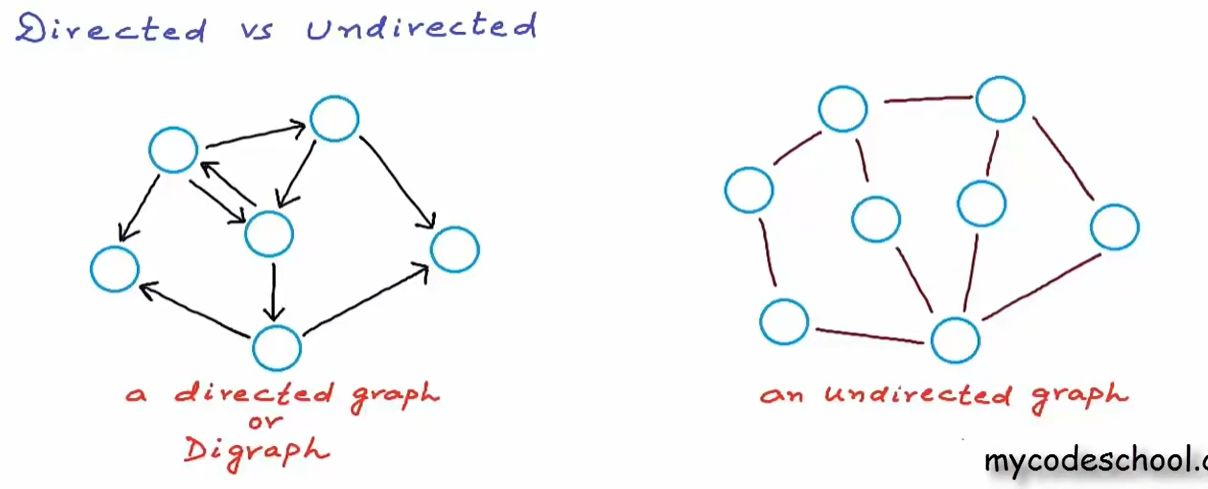 Directed vs Undirected
a directed graph
or
Digraph
an undirected graph
mycodeschool.c